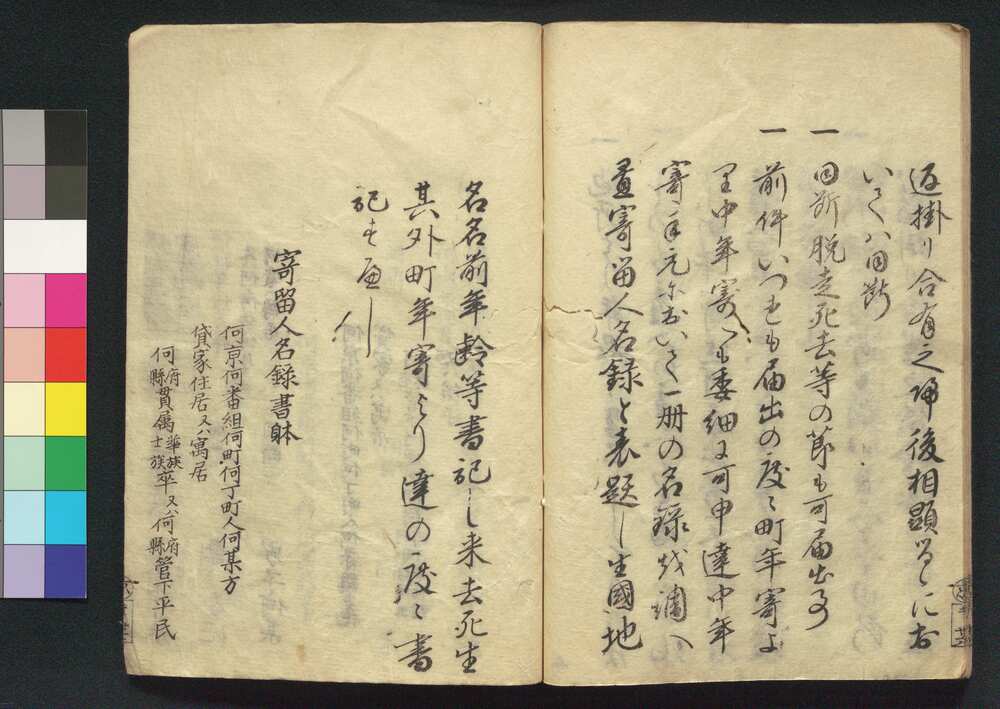 返掛り合有之帰後相顕るゝに於
いてハ同断
一 同断脱走死去等の節も可届出事
一 前件いつれも届出の度々町年寄よ
里中年寄へも委細に可申達中年
寄手元において一册の名録越調へ
畳寄留人名録と表題し生國地
名名前年齢等書記し来去死生
其外町年寄より達の度々書
記すべし
寄留人名録書躰
何京何番組何町何丁町人何某方
貸家住居又ハ寓居
何府縣貫属華族士族卒又ハ何府縣管下平民